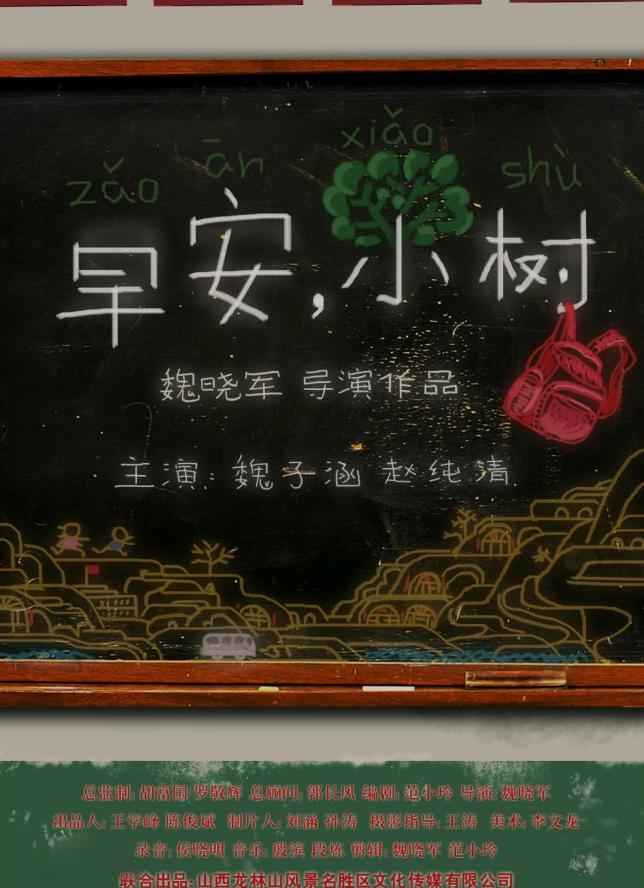 zǎo ān xiǎo shù
早安,小树
魏晓军 导演作品
主演:魏子涵 赵纯清
总监制:胡富国 罗敬辉 总顾问:郭长风 编剧:范小玲 导演:魏晓军
出品人:王学峰 陈俊斌 制片人:刘涵 孙涛 摄影指导:王涛 美术:李文龙
录音:侯晓明 音乐:殷滨 段炼 剪辑:魏晓军 范小玲
联合出品:山西龙林山风景名胜区文化传媒有限公司